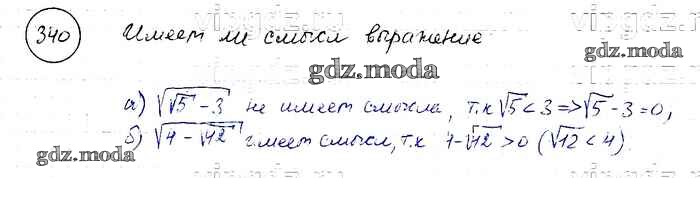 340 Имеет ли смысл выражение
gdz.moda
gdz.moda
а) √(√5 - 3) не имеет смысла, т.к √5 < 3 => √5 - 3 = 0,
б) √(4 - √12) имеет смысл, т.к 4 - √12 > 0 (√12 < 4).
gdz.moda